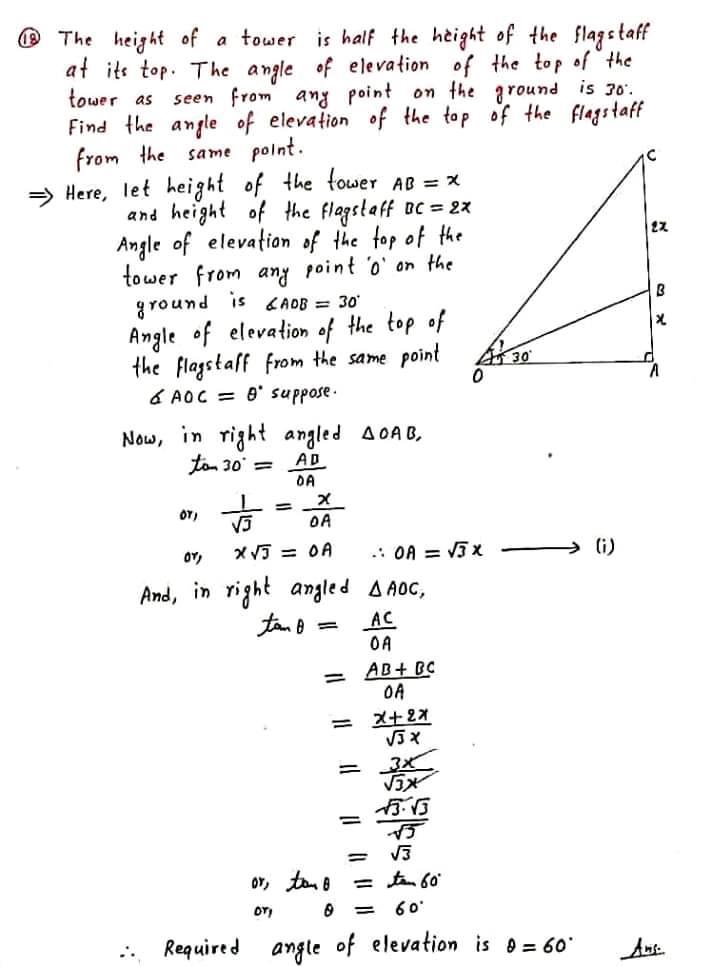 (18) The height of a tower is half the height of the flagstaff
at its top. The angle of elevation of the top of the
tower as seen from any point on the ground is 30°.
Find the angle of elevation of the top of the flagstaff
from the same point.
⇒ Here, let height of the tower AB = x
and height of the flagstaff BC = 2x
Angle of elevation of the top of the
tower from any point 'O' on the
ground is ∡AOB = 30°
Angle of elevation of the top of
the flagstaff from the same point
∡AOC = θ° suppose.
C
2x
B
x
A
O
?
30°
Now, in right angled △OAB,
tan 30° = AB/OA
or, 1/√3 = x/OA
or, x√3 = OA ∴ OA = √3 x ⟶ (i)
And, in right angled △AOC,
tan θ = AC/OA
= AB + BC/OA
= x + 2x/√3 x
= 3x/√3x
= √3·√3/√3
= √3
or, tan θ = tan 60°
or, θ = 60°
∴ Required angle of elevation is θ = 60° Ans.